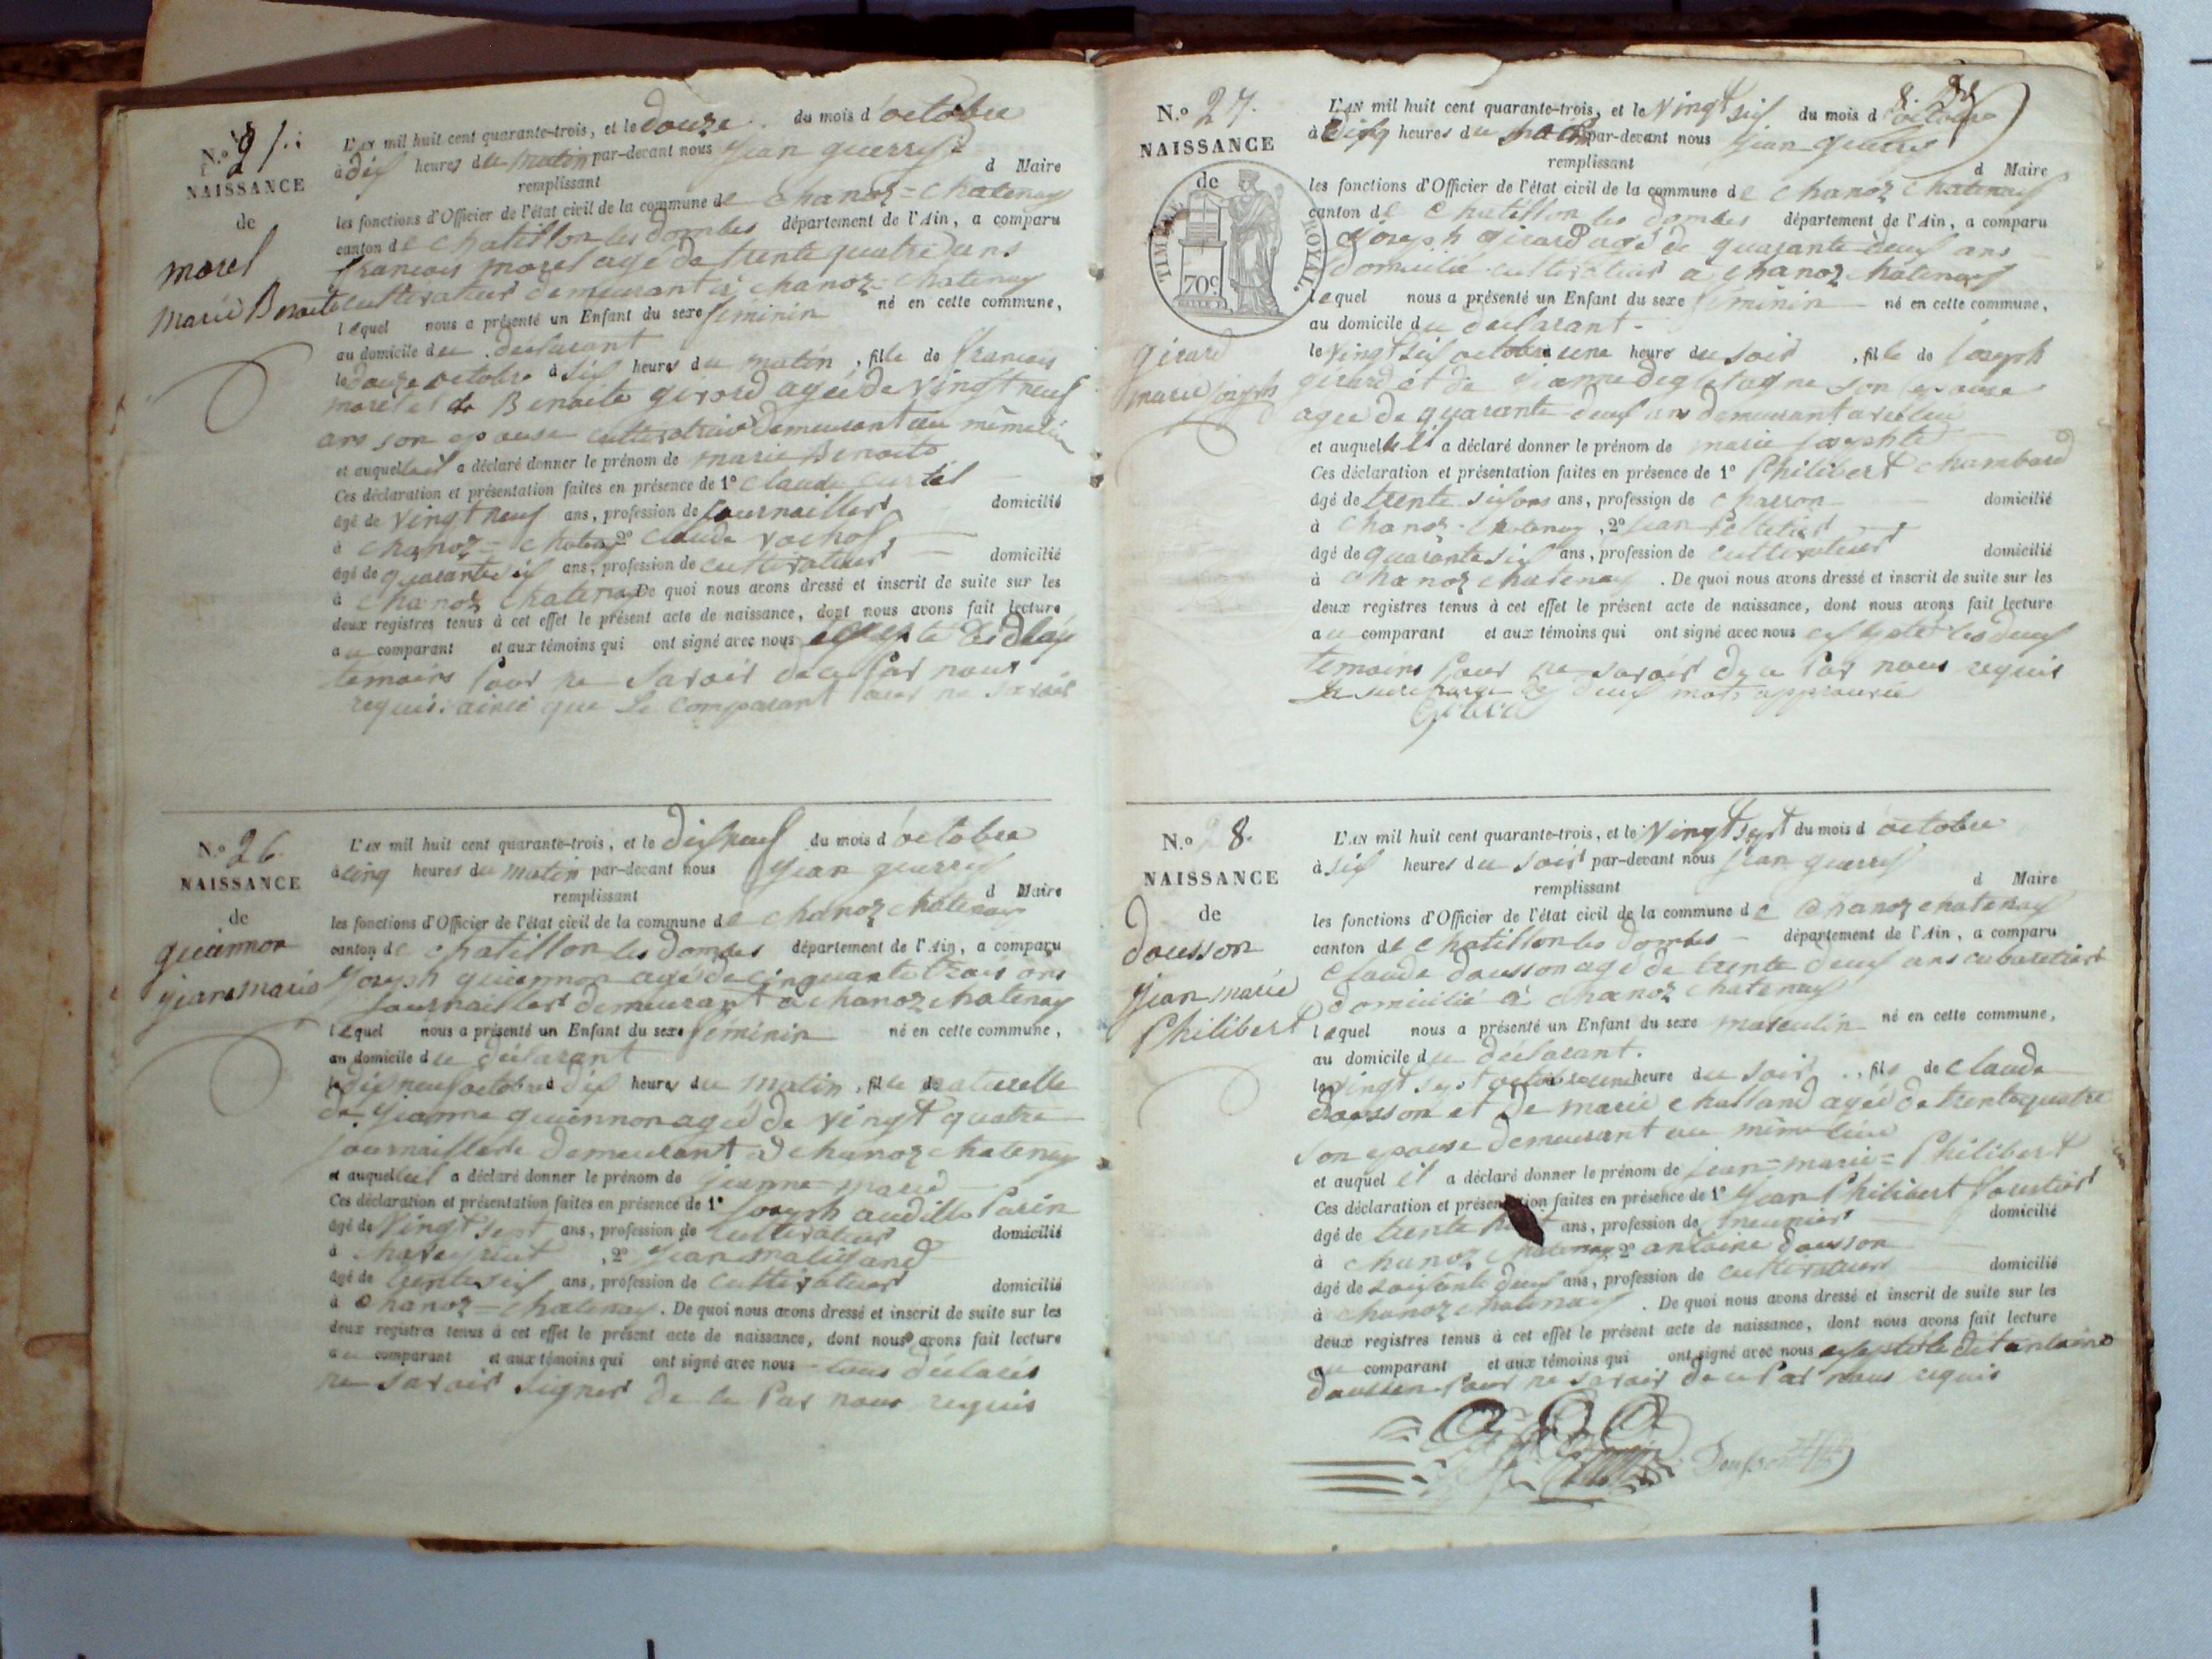 NAISSANCE
de
morel
marie Benoite
L'AN mil huit cent quarante-trois, et le douze du mois d'octobre
à dix heures du matin par-devant nous jean guerry
d Maire
remplissant
les fonctions d'Officier de l'état civil de la commune de chanoz=chatenay
canton de chatillon les dombes département de l'Ain, a comparu
francois morel agé de trente quatre ans
cultivateur demeurant à chanoz=chatenay
lequel nous a présenté un Enfant du sexe féminin né en cette commune,
au domicile du declarant
le douze octobre à six heures du matin, fille de francois
morel et de Benoite girard agée de vingt neuf
ans son epouse demeurant au même lieu
et auquel a déclaré donner le prénom de marie Benoite
Ces déclaration et présentation faites en présence de 1° claude curtil
âgé de vingt neuf ans, profession de journaillier domicilié
à chanoz=chatenay 2° claude
âgé de quarante six ans, profession de cultivateur domicilié
à chanoz chatenay De quoi nous avons dressé et inscrit de suite sur les
deux registres tenus à cet effet le présent acte de naissance, dont nous avons fait lecture
au comparant et aux témoins qui ont signé avec nous
temoins pour ne savoir de ce par nous
requis ainsi que le comparant pour ne savoir
N.° 26.
NAISSANCE
de
guiennon
jeanne marie
L'AN mil huit cent quarante-trois, et le dix neuf du mois d'octobre
à cinq heures du matin par-devant nous jean guerry
d Maire
remplissant
les fonctions d'Officier de l'état civil de la commune de chanoz chatenay
canton de chatillon les dombes département de l'Ain, a comparu
joseph guiennon agé de cinquante trois ans
journaillier demeurant à chanoz chatenay
lequel nous a présenté un Enfant du sexe féminin né en cette commune,
au domicile du declarant
le dix neuf octobre à dix heures du matin, fille de naturelle
de jeanne guiennon agée de vingt quatre
demeurant à chanoz chatenay
et auquel a déclaré donner le prénom de jeanne marie
Ces déclaration et présentation faites en présence de 1° joseph
âgé de vingt sept ans, profession de cultivateur domicilié
à chaveyriat, 2° jean
âgé de trente six ans, profession de cultivateur domicilié
à chanoz=chatenay. De quoi nous avons dressé et inscrit de suite sur les
deux registres tenus à cet effet le présent acte de naissance, dont nous avons fait lecture
au comparant et aux témoins qui ont signé avec nous tous déclarés
ne savoir signer de ce par nous requis
N.° 27.
NAISSANCE
de
TIMBRE ROYAL.
70c
girard
marie josephte
L'AN mil huit cent quarante-trois, et le vingt six du mois d'octobre
à heures du par-devant nous jean guerry
d Maire
remplissant
les fonctions d'Officier de l'état civil de la commune de chanoz chatenay
canton de chatillon les dombes département de l'Ain, a comparu
joseph girard agé de quarante deux ans
domicilié cultivateur a chanoz chatenay
lequel nous a présenté un Enfant du sexe féminin né en cette commune,
au domicile du declarant.
le vingt six octobre à une heure du soir, fille de joseph
girard et de jeanne son epouse
agee de quarante deux ans demeurant
et auquel a déclaré donner le prénom de marie josephte
Ces déclaration et présentation faites en présence de 1° Philibert chambard
âgé de trente six ans ans, profession de charron domicilié
à chanoz=chatenay, 2° jean Pelletier
âgé de quarante six ans, profession de cultivateur domicilié
à chanoz chatenay. De quoi nous avons dressé et inscrit de suite sur les
deux registres tenus à cet effet le présent acte de naissance, dont nous avons fait lecture
au comparant et aux témoins qui ont signé avec nous excepté les deux
temoins pour ne savoir de ce par nous requis
la surcharge de deux mots approuvée
girard
N.° 28.
NAISSANCE
de
dousson
jean marie
Philibert
L'AN mil huit cent quarante-trois, et le vingt sept du mois d octobre
à six heures du soir par-devant nous jean guerry
d Maire
remplissant
les fonctions d'Officier de l'état civil de la commune de chanoz chatenay
canton de chatillon les dombes département de l'Ain, a comparu
claude dousson agé de trente deux ans cabaretier
domicilié à chanoz chatenay
lequel nous a présenté un Enfant du sexe masculin né en cette commune,
au domicile du déclarant.
le vingt sept octobre à une heure du soir, fils de claude
dousson et de marie challand agée de trente quatre
son epouse demeurant au même lieu
et auquel il a déclaré donner le prénom de jean=marie=Philibert
Ces déclaration et présentation faites en présence de 1° jean Philibert
âgé de trente ans, profession de meunier domicilié
à chanoz chatenay 2° antoine dousson
âgé de soixante deux ans, profession de cultivateur domicilié
à chanoz chatenay. De quoi nous avons dressé et inscrit de suite sur les
deux registres tenus à cet effet le présent acte de naissance, dont nous avons fait lecture
au comparant et aux témoins qui ont signé avec nous excepté le dit antoine
dousson pour ne savoir de ce par nous requis